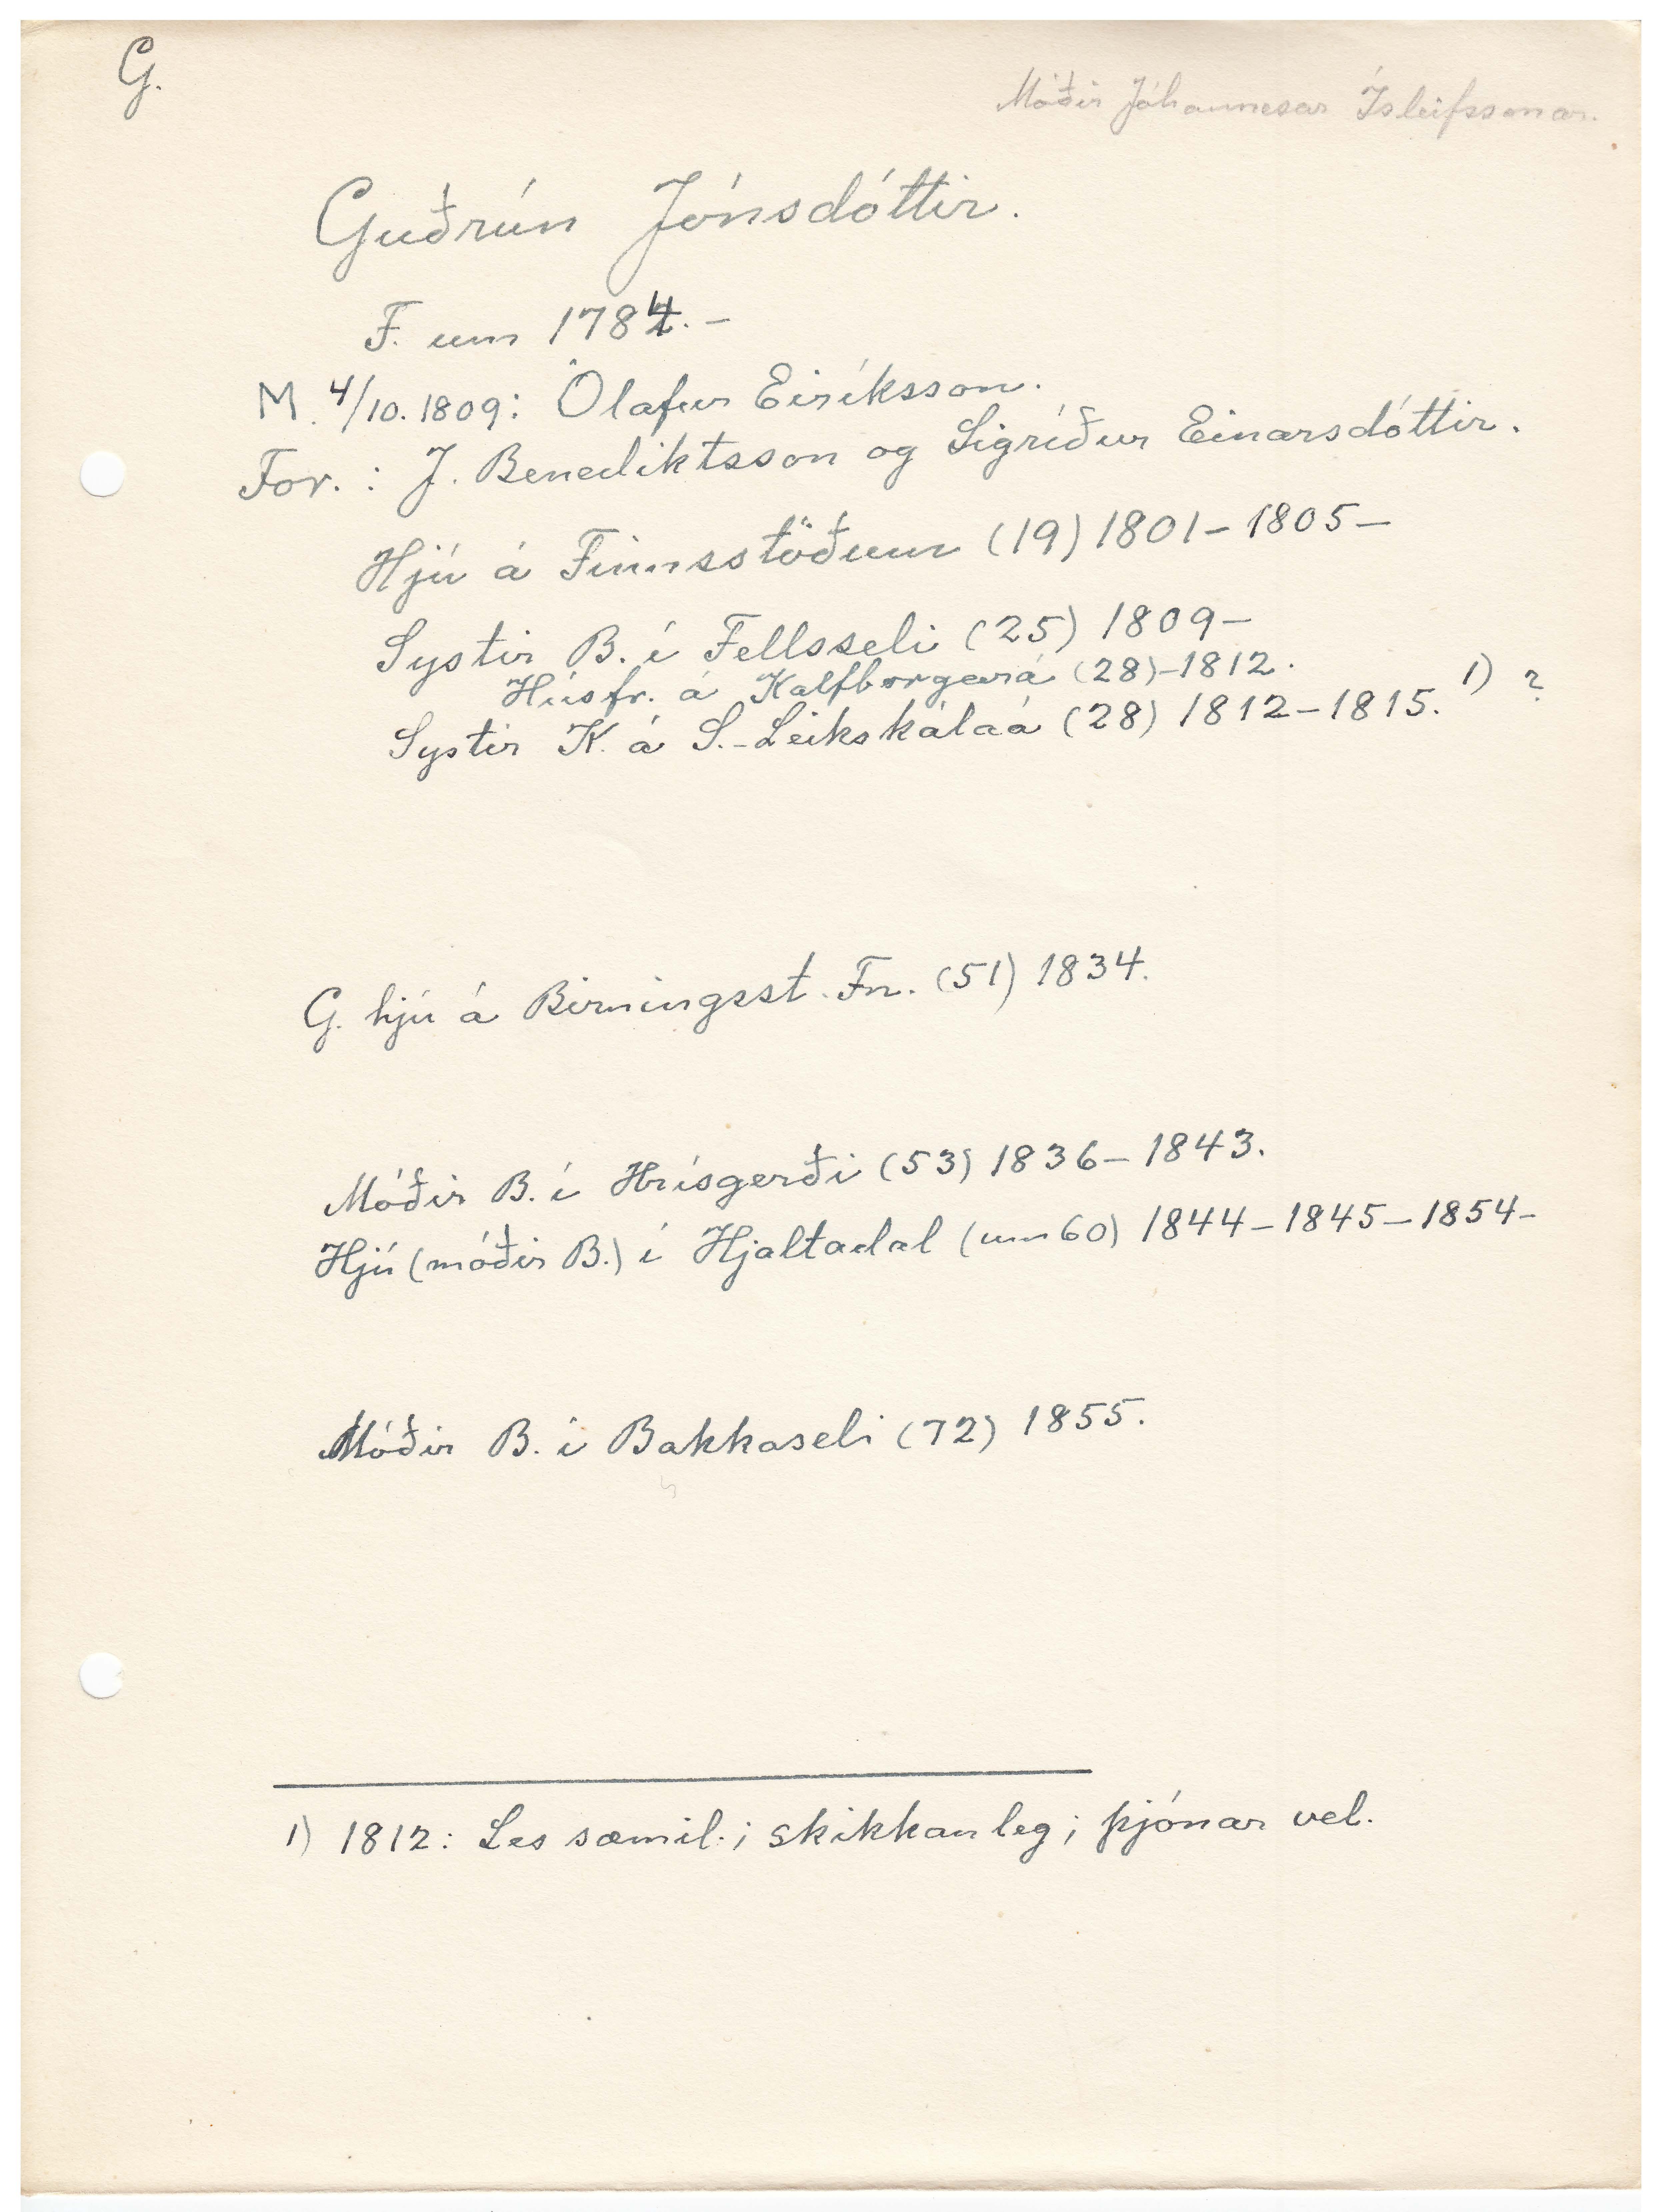 G.
Móðir Jóhannesar Ísleifssonar.
Guðrún Jónsdóttir.
F. um 1784. –
M. 4/10. 1809: Ólafur Eiríksson.
For. : J. Benediktsson og Sigríður Einarsdóttir.
Hjú á Finnsstöðum (19) 1801 – 1805 –
Systir B. í Fellsseli (25) 1809 –
Húsfr. á Kalfborgará (28) – 1812.
Systir K. á S. – Leikskálaá (28) 1812 – 1815. 1) ?
G. hjú á Birningsst. Fn. (51) 1834.
Móðir B. í Hrísgerði (53) 1836 – 1843.
Hjú (móðir B.) í Hjaltadal (um 60) 1844 – 1845 – 1854 –
Móðir B. í Bakkaseli (72) 1855.
1) 1812: Les sæmil. ; skikkanleg ; þjónar vel.